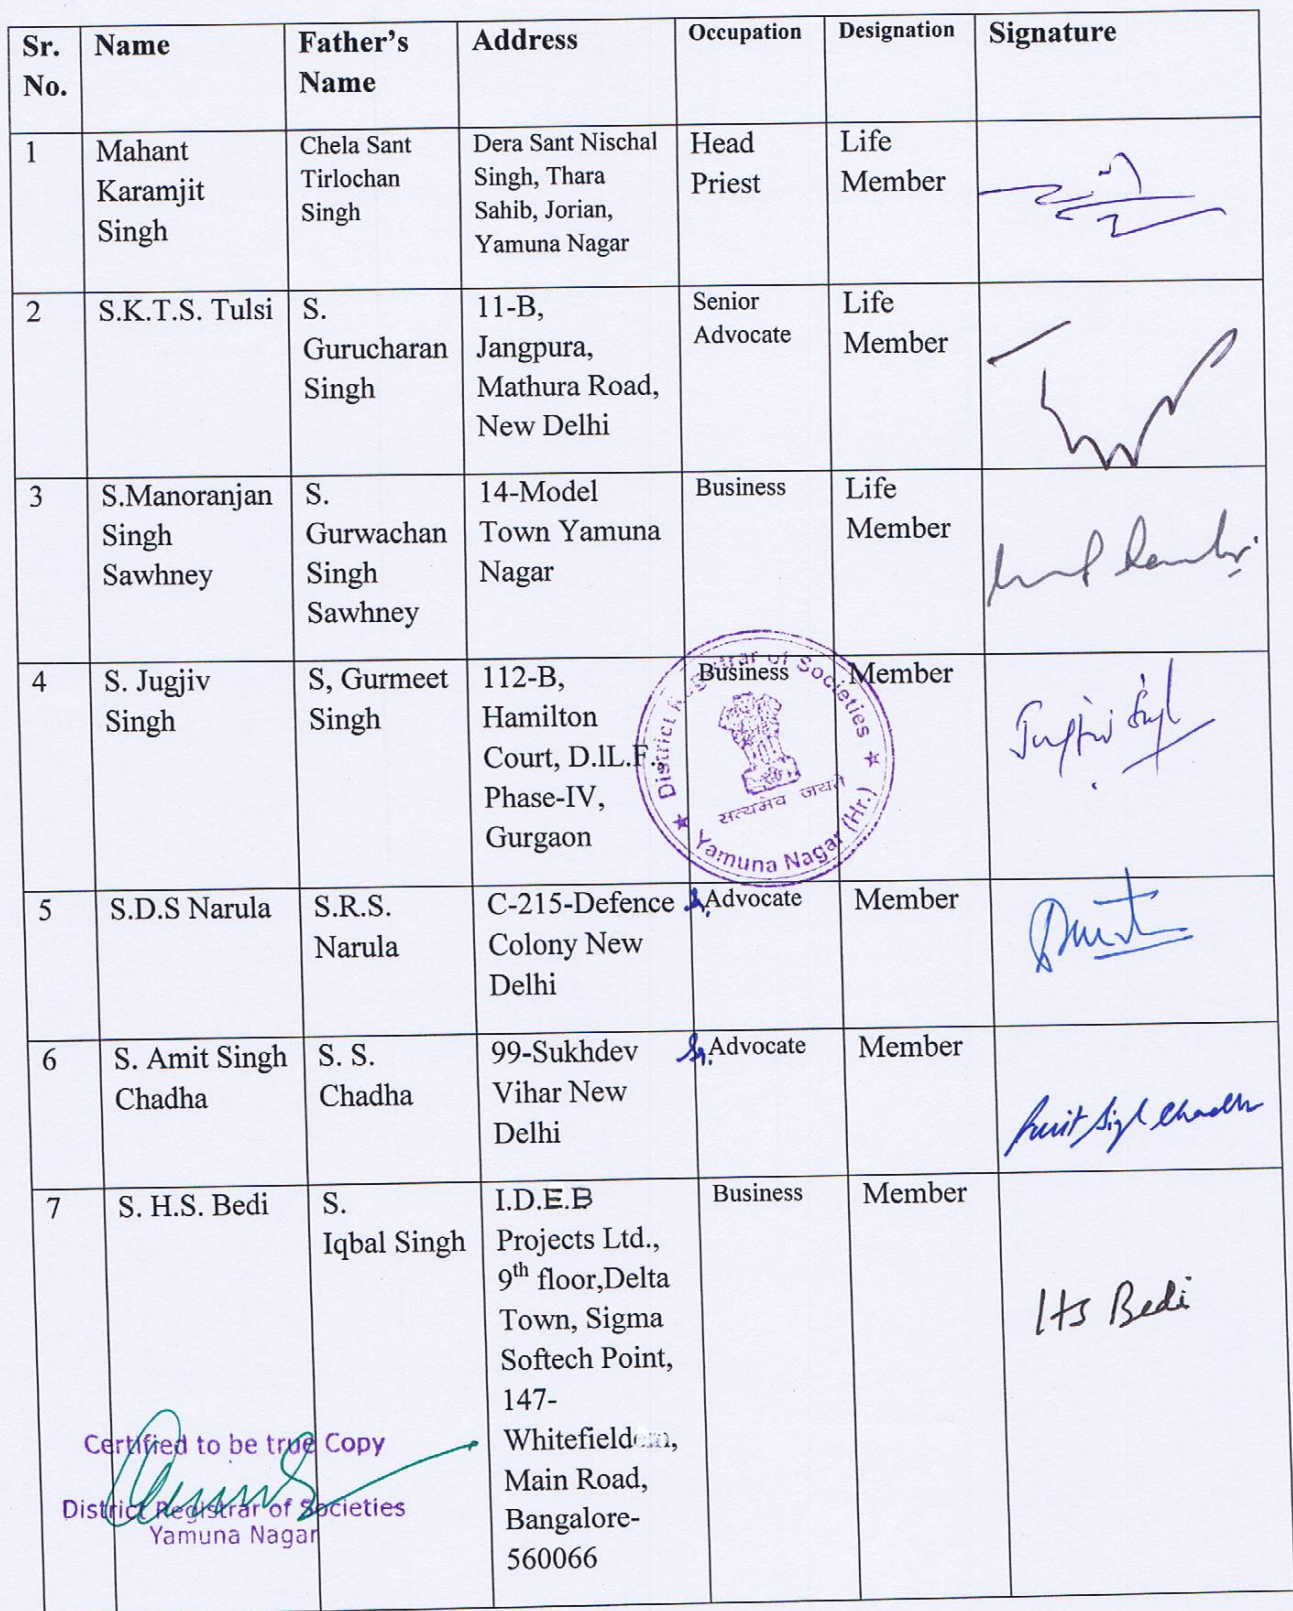 Sr. No. Name Father's Name Address Occupation Designation Signature
1 Mahant Karamjit Singh Chela Sant Tirlochan Singh Dera Sant Nischal Singh, Thara Sahib, Jorian, Yamuna Nagar Head Priest Life Member
2 S.K.T.S. Tulsi S. Gurucharan Singh 11-B, Jangpura, Mathura Road, New Delhi Senior Advocate Life Member
3 S.Manoranjan Singh Sawhney S. Gurwachan Singh Sawhney 14-Model Town Yamuna Nagar Business Life Member
4 S. Jugjiv Singh S, Gurmeet Singh 112-B, Hamilton Court, D.lL.F., Phase-IV, Gurgaon Business Member Jugjiv Singh
District Registrar of Societies
सत्यमेव जयते
Yamuna Nagar (Hr.)
5 S.D.S Narula S.R.S. Narula C-215-Defence Colony New Delhi Sr. Advocate Member
6 S. Amit Singh Chadha S. S. Chadha 99-Sukhdev Vihar New Delhi Sr. Advocate Member Amit Singh Chadha
7 S. H.S. Bedi S. Iqbal Singh I.D.E.B Projects Ltd., 9th floor,Delta Town, Sigma Softech Point, 147- Whitefield, Main Road, Bangalore- 560066 Business Member HS Bedi
Certified to be true Copy
District Registrar of Societies
Yamuna Nagar